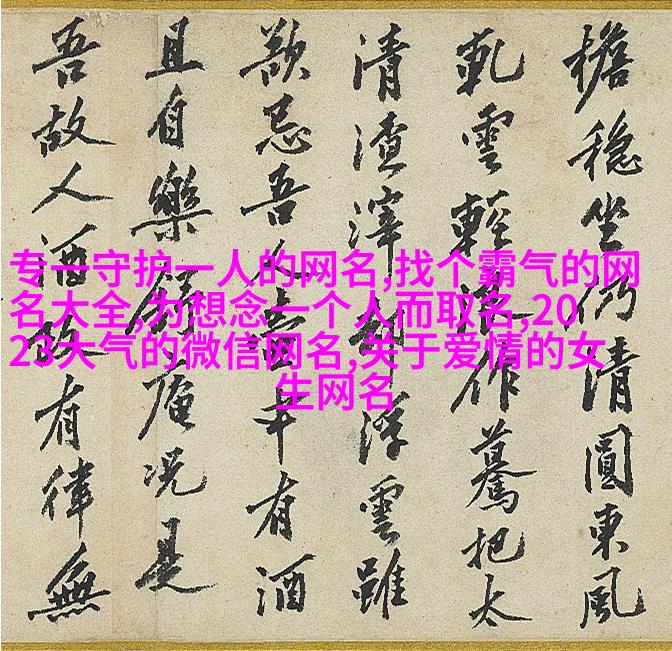 专一守护一人的网名,找个霸气的网
名大全,为想念一个人而取名,20
23大气的微信网名,关于爱情的女
生网名
檐穩坐仍清圓東風
軋雲輕作驀把太
清渣滓浮雲雖
忌吾有酒
且自樂庵况是
吾故人酒故有律無